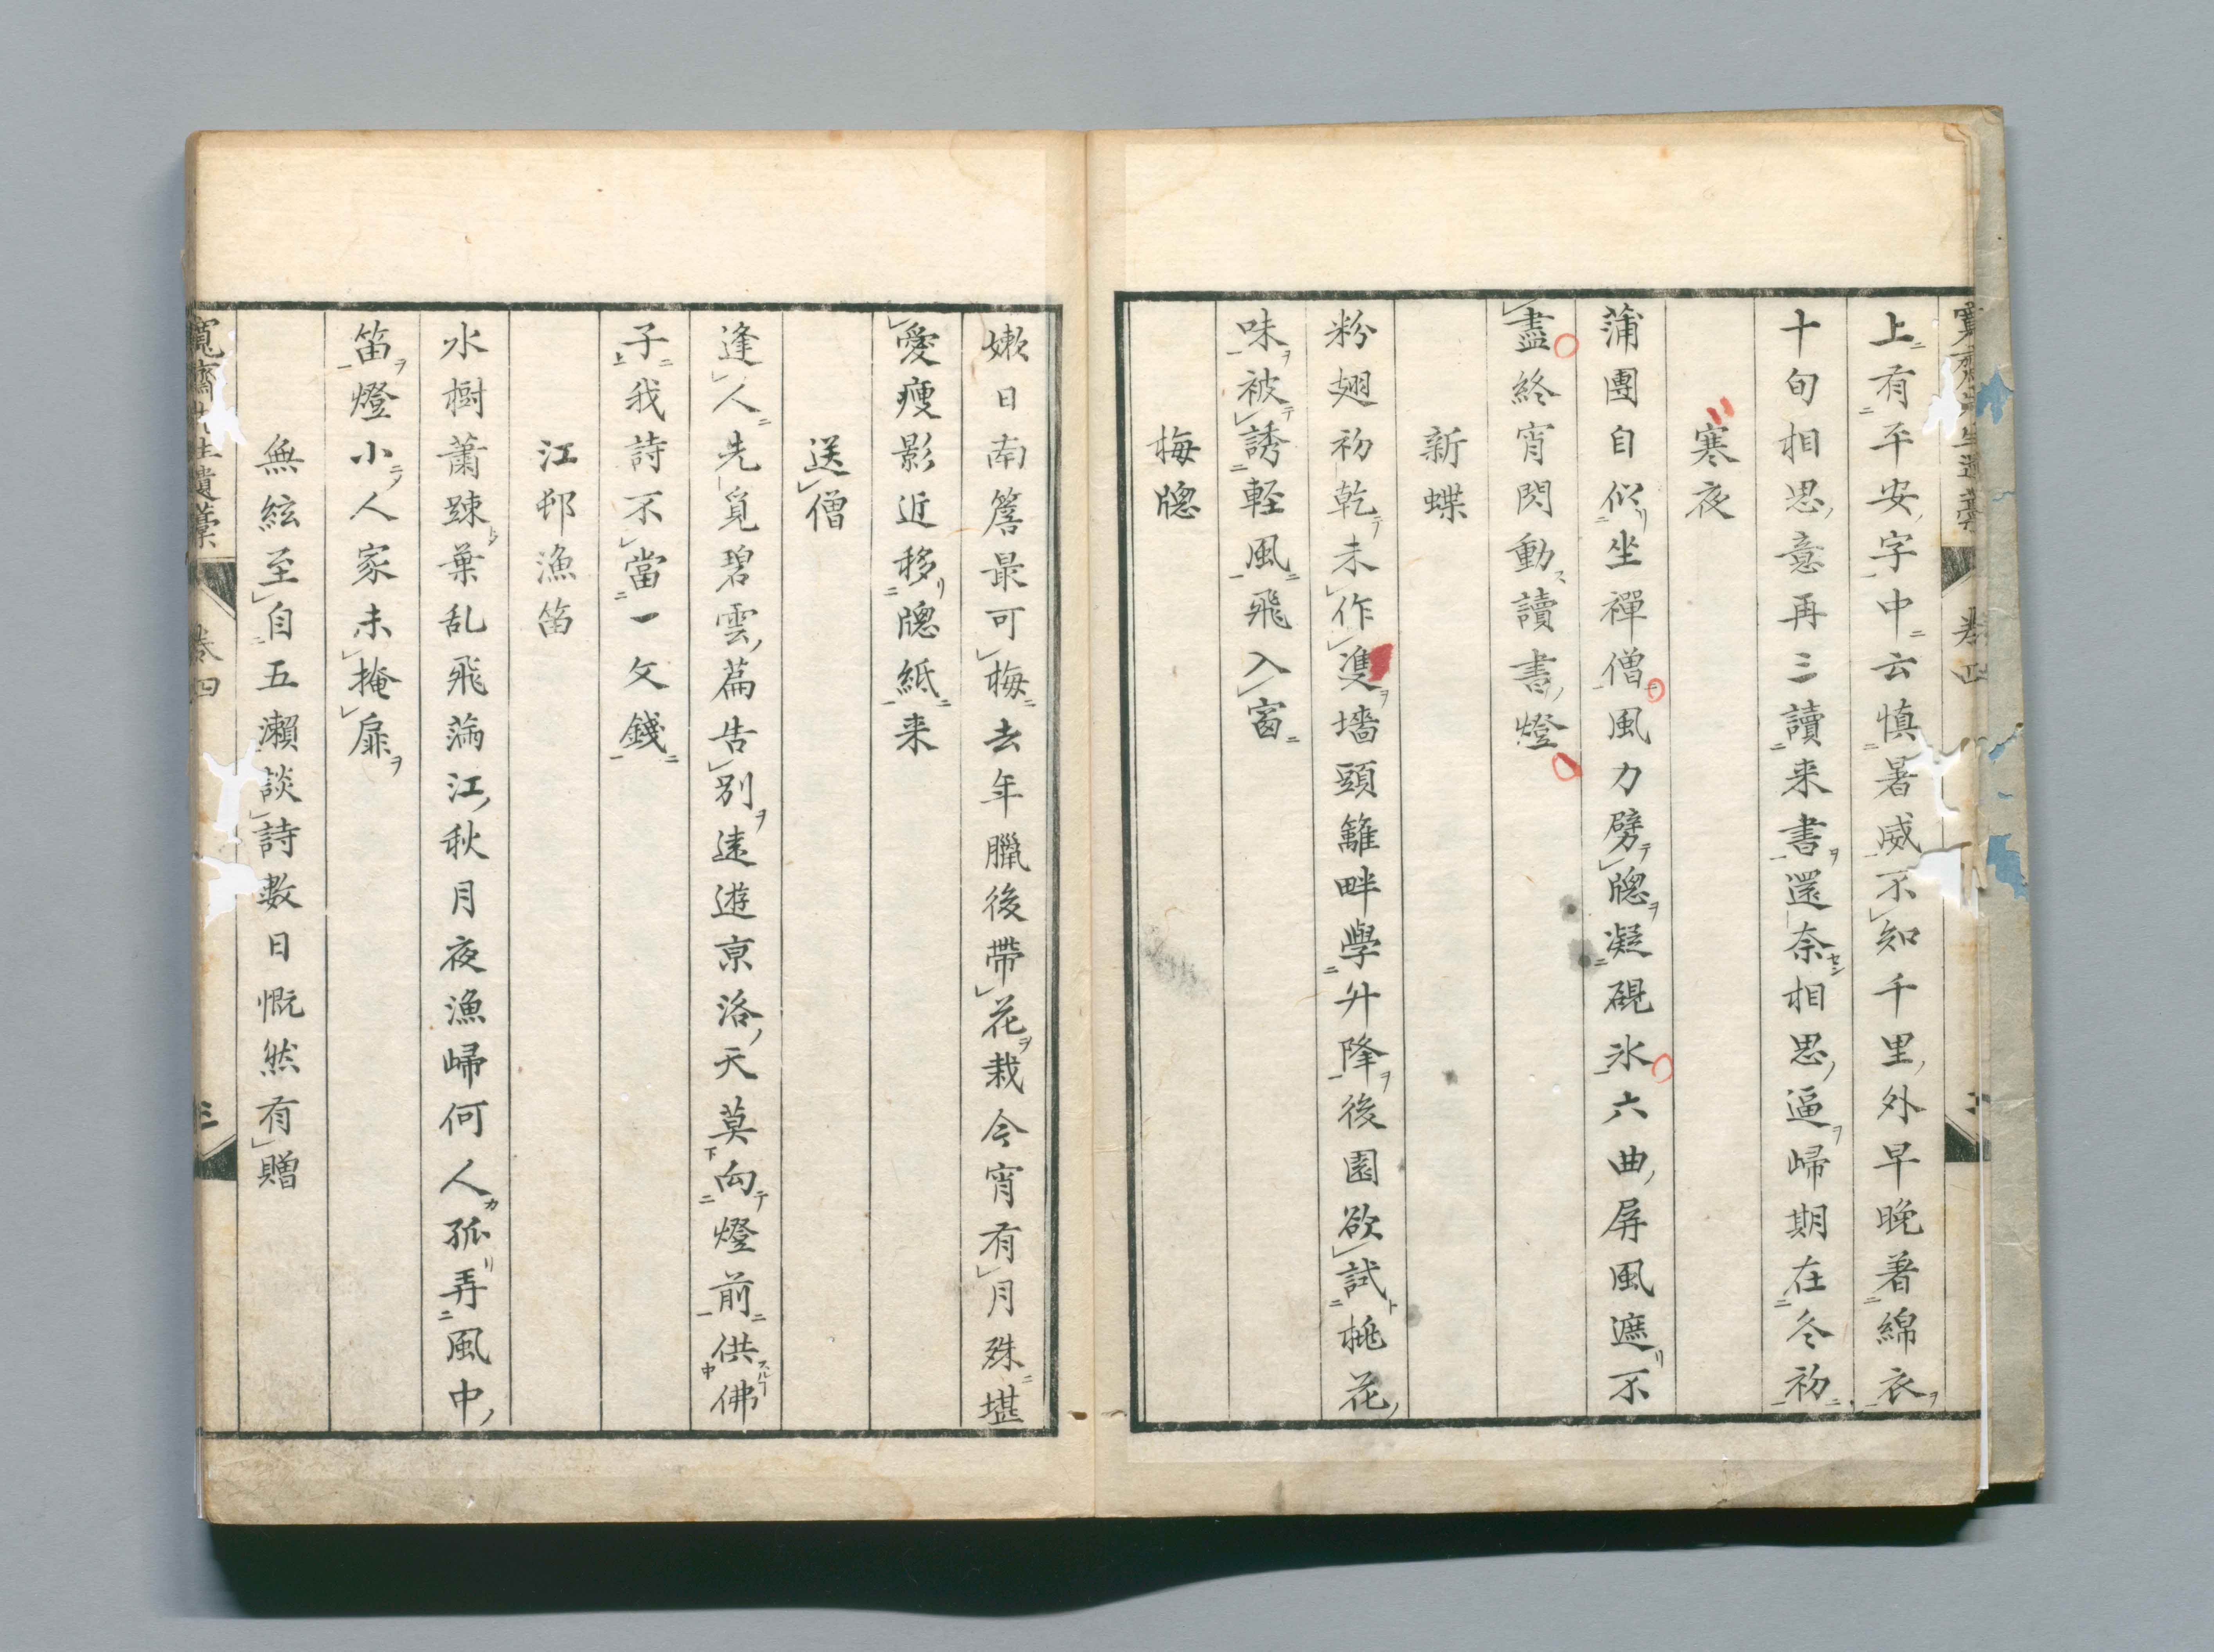 寛齋先生遺藁 卷四
上有平安字中云慎暑威不知千里外早晚着綿衣
十旬相思意再三讀来書還奈相思逼歸期在冬初
寒夜
蒲團自似坐禪僧風力劈牕凝硯氷六曲屏風遮不
盡終宵閃動讀書燈
新蝶
粉翅初乾未作隻墻頭籬畔學升降後園欲試桃花
味被誘軽風飛入窗
梅牕
嫰日南簷最可梅去年臘後帶花栽今宵有月殊堪
愛瘦影近移牕紙来
送僧
逢人先覓碧雲篇告別遠遊京洛天莫向燈前供佛
子我詩不當一文錢
江邨漁笛
水樹蕭踈葉乱飛滿江秋月夜漁歸何人孤弄風中
笛燈小人家未掩扉
無絃至自五瀨談詩數日慨然有贈
寛齋先生遺藁 卷四 三